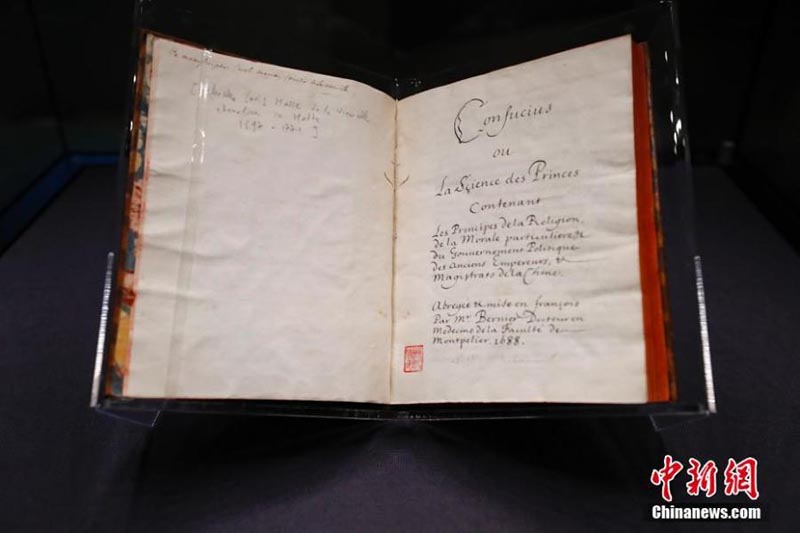 Ce manuscript
Malte de la
chevalier de Malte
Confucius
ou
La Science des Princes
Contenant
Les Principes de la Religion,
de la Morale particuliere &
du Gouvernement Politique
des Anciens Empereurs, &
Magistrats de la Chine.
Abregé & mise en françois
Par Mr. Bernier Docteur en
Medecine de la Faculté de
Montpelier. 1688.
中新网
Chinanews.com